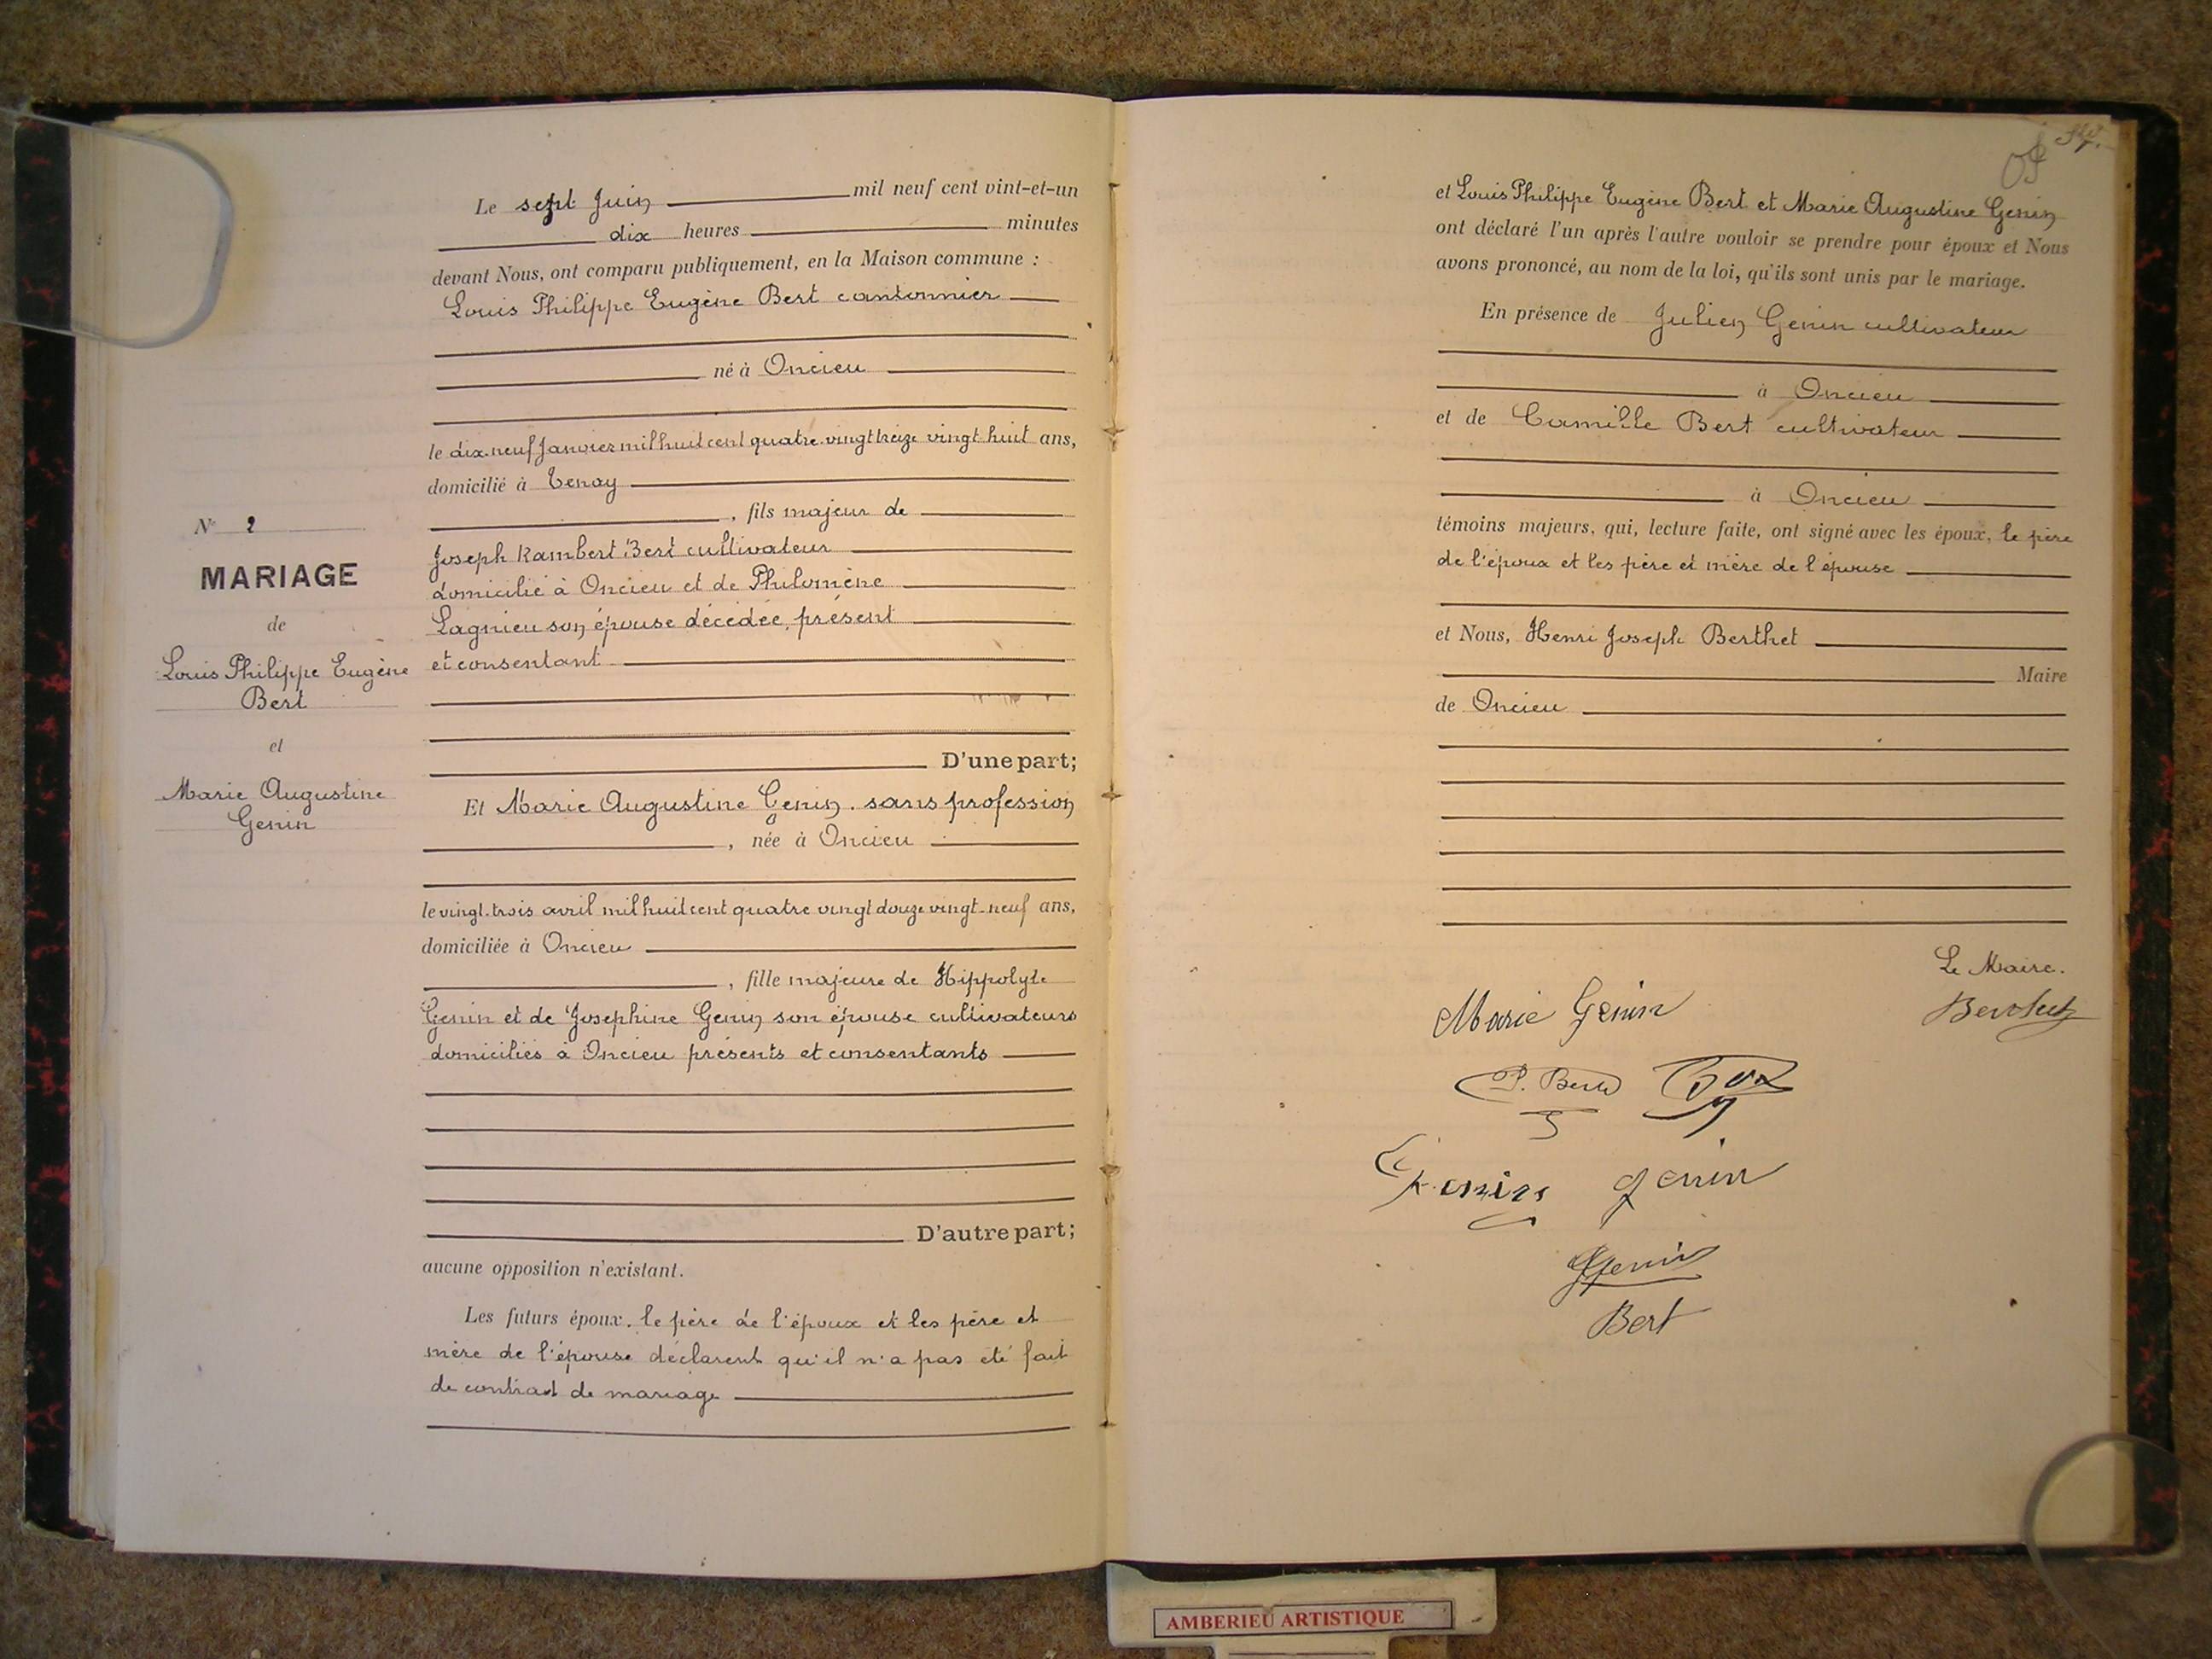 Le sept Juin mil neuf cent vint-et-un
dix heures minutes
devant Nous, ont comparu publiquement, en la Maison commune :
Louis Philippe Eugène Bert cantonnier
né à Oncieu
le dix-neuf Janvier mil huit cent quatre-vingt treize vingt-huit ans,
domicilié à Tenay
, fils majeur de
Joseph Rambert Bert cultivateur
domicilié à Oncieu et de Philomène
Lagnieu son épouse décédée, présent
et consentant
D'une part;
Et Marie Augustine Genin. sans profession
, née à Oncieu
le vingt-trois avril mil huit cent quatre vingt douze vingt-neuf ans,
domiciliée à Oncieu
, fille majeure de Hippolyte
Genin et de Josephine Genin son épouse cultivateurs
domiciliés à Oncieu présents et consentants
D'autre part;
aucune opposition n'existant.
Les futurs époux, le père de l'époux et les père et
mère de l'épouse déclarent qu'il n'a pas été fait
de contrat de mariage
N° 2
MARIAGE
de
Louis Philippe Eugène
Bert
et
Marie Augustine
Genin
et Louis Philippe Eugène Bert et Marie Augustine Genin
ont déclaré l'un après l'autre vouloir se prendre pour époux et Nous
avons prononcé, au nom de la loi, qu'ils sont unis par le mariage.
En présence de Julien Genin cultivateur
à Oncieu
et de Camille Bert cultivateur
à Oncieu
témoins majeurs, qui, lecture faite, ont signé avec les époux, le père
de l'époux et les père et mère de l'épouse
et Nous, Henri Joseph Berthet
Maire
de Oncieu
Le Maire.
Berthet
Marie Genin
P. Bert
Genin genin
Genin
Bert
AMBERIEU ARTISTIQUE